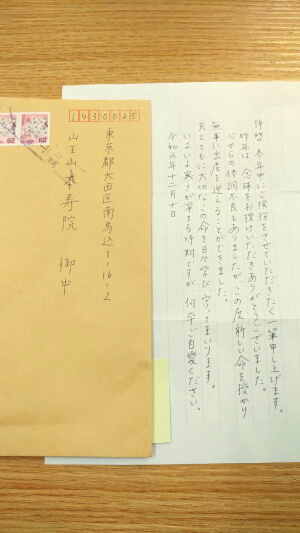 拝啓 本年中にご挨拶をさせていただきたく一筆申し上げます。
昨年は、念珠をお授けいただきありがとうございました。
心からの体調不良もありましたが、この度新しい命を授かり
無事に出産を迎えることができました。
夫とともに大切なこの命を日々学び、守ってまいります。
いよいよ寒さが深まる時期ですが、何卒ご自愛ください。
令和元年十二月十日
1430025
東京都大田区南馬込1-16-2
山王山 本寿院 御中
62
62